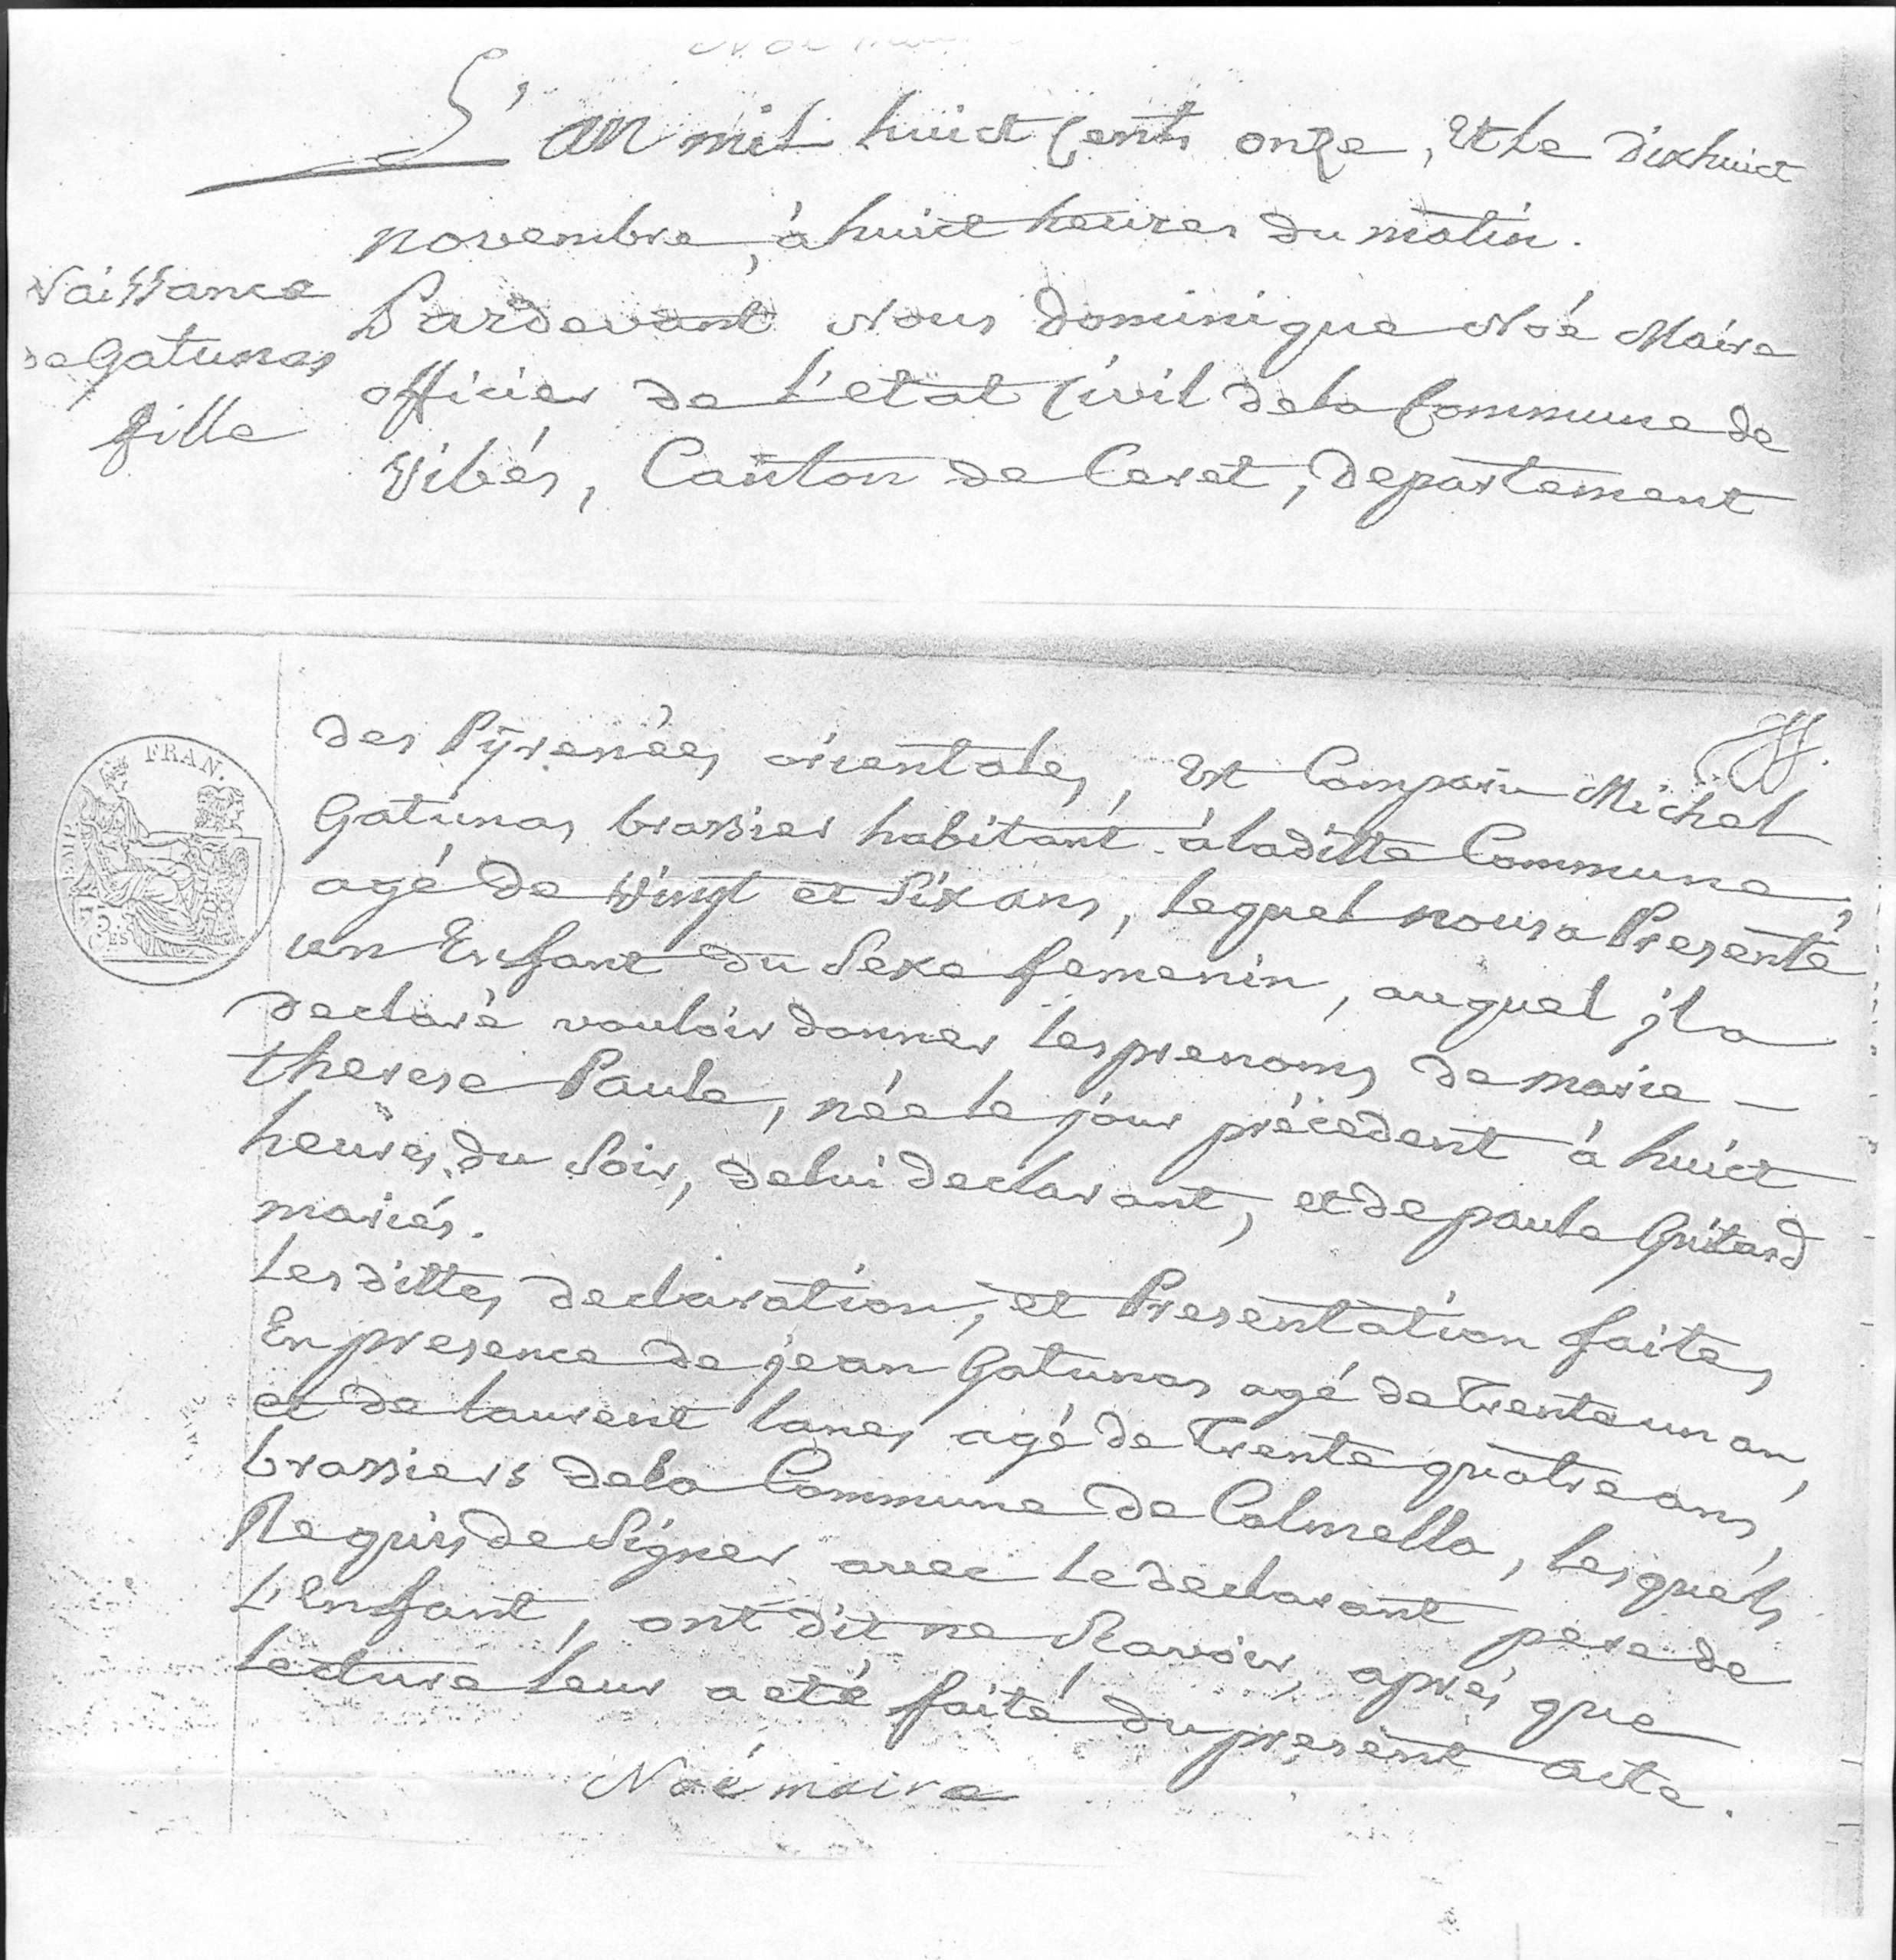 L'an mil huict Cents onze, Et le dixhuict
novembre, à huict heures du matin.
Naissance
de Gatunas
fille
Pardevant Nous Dominique Noé Maire
officier de L'etat Civil dela Commune de
Vibés, Canton de Ceret, departement
FRAN.
EMP
75
CES
des Pÿrenées orientales, Est Comparu Michel
Gatunas brassier habitant à laditte Commune,
agé de Vingt et Six ans, lequel nous a Presenté
un Enfant du Sexe femenin, auquel jl a
declaré vouloir donner les prenoms de marie -
therese Paule, née le jour précedent à huict
heures du Soir, de lui declarant, et de paule Guitard
mariés.
Les dittes declaration, et Presentation faites
En presence de jean Gatunas agé de Trente un an,
et de laurent lanes agé de Trente quatre ans,
brassiers dela Commune de Calmella, lesquels
Requis de Signer avec le declarant pere de
L'Enfant, ont dit ne Sçavoir, aprés que
lecture leur a eté faite du present acte.
Noé maire